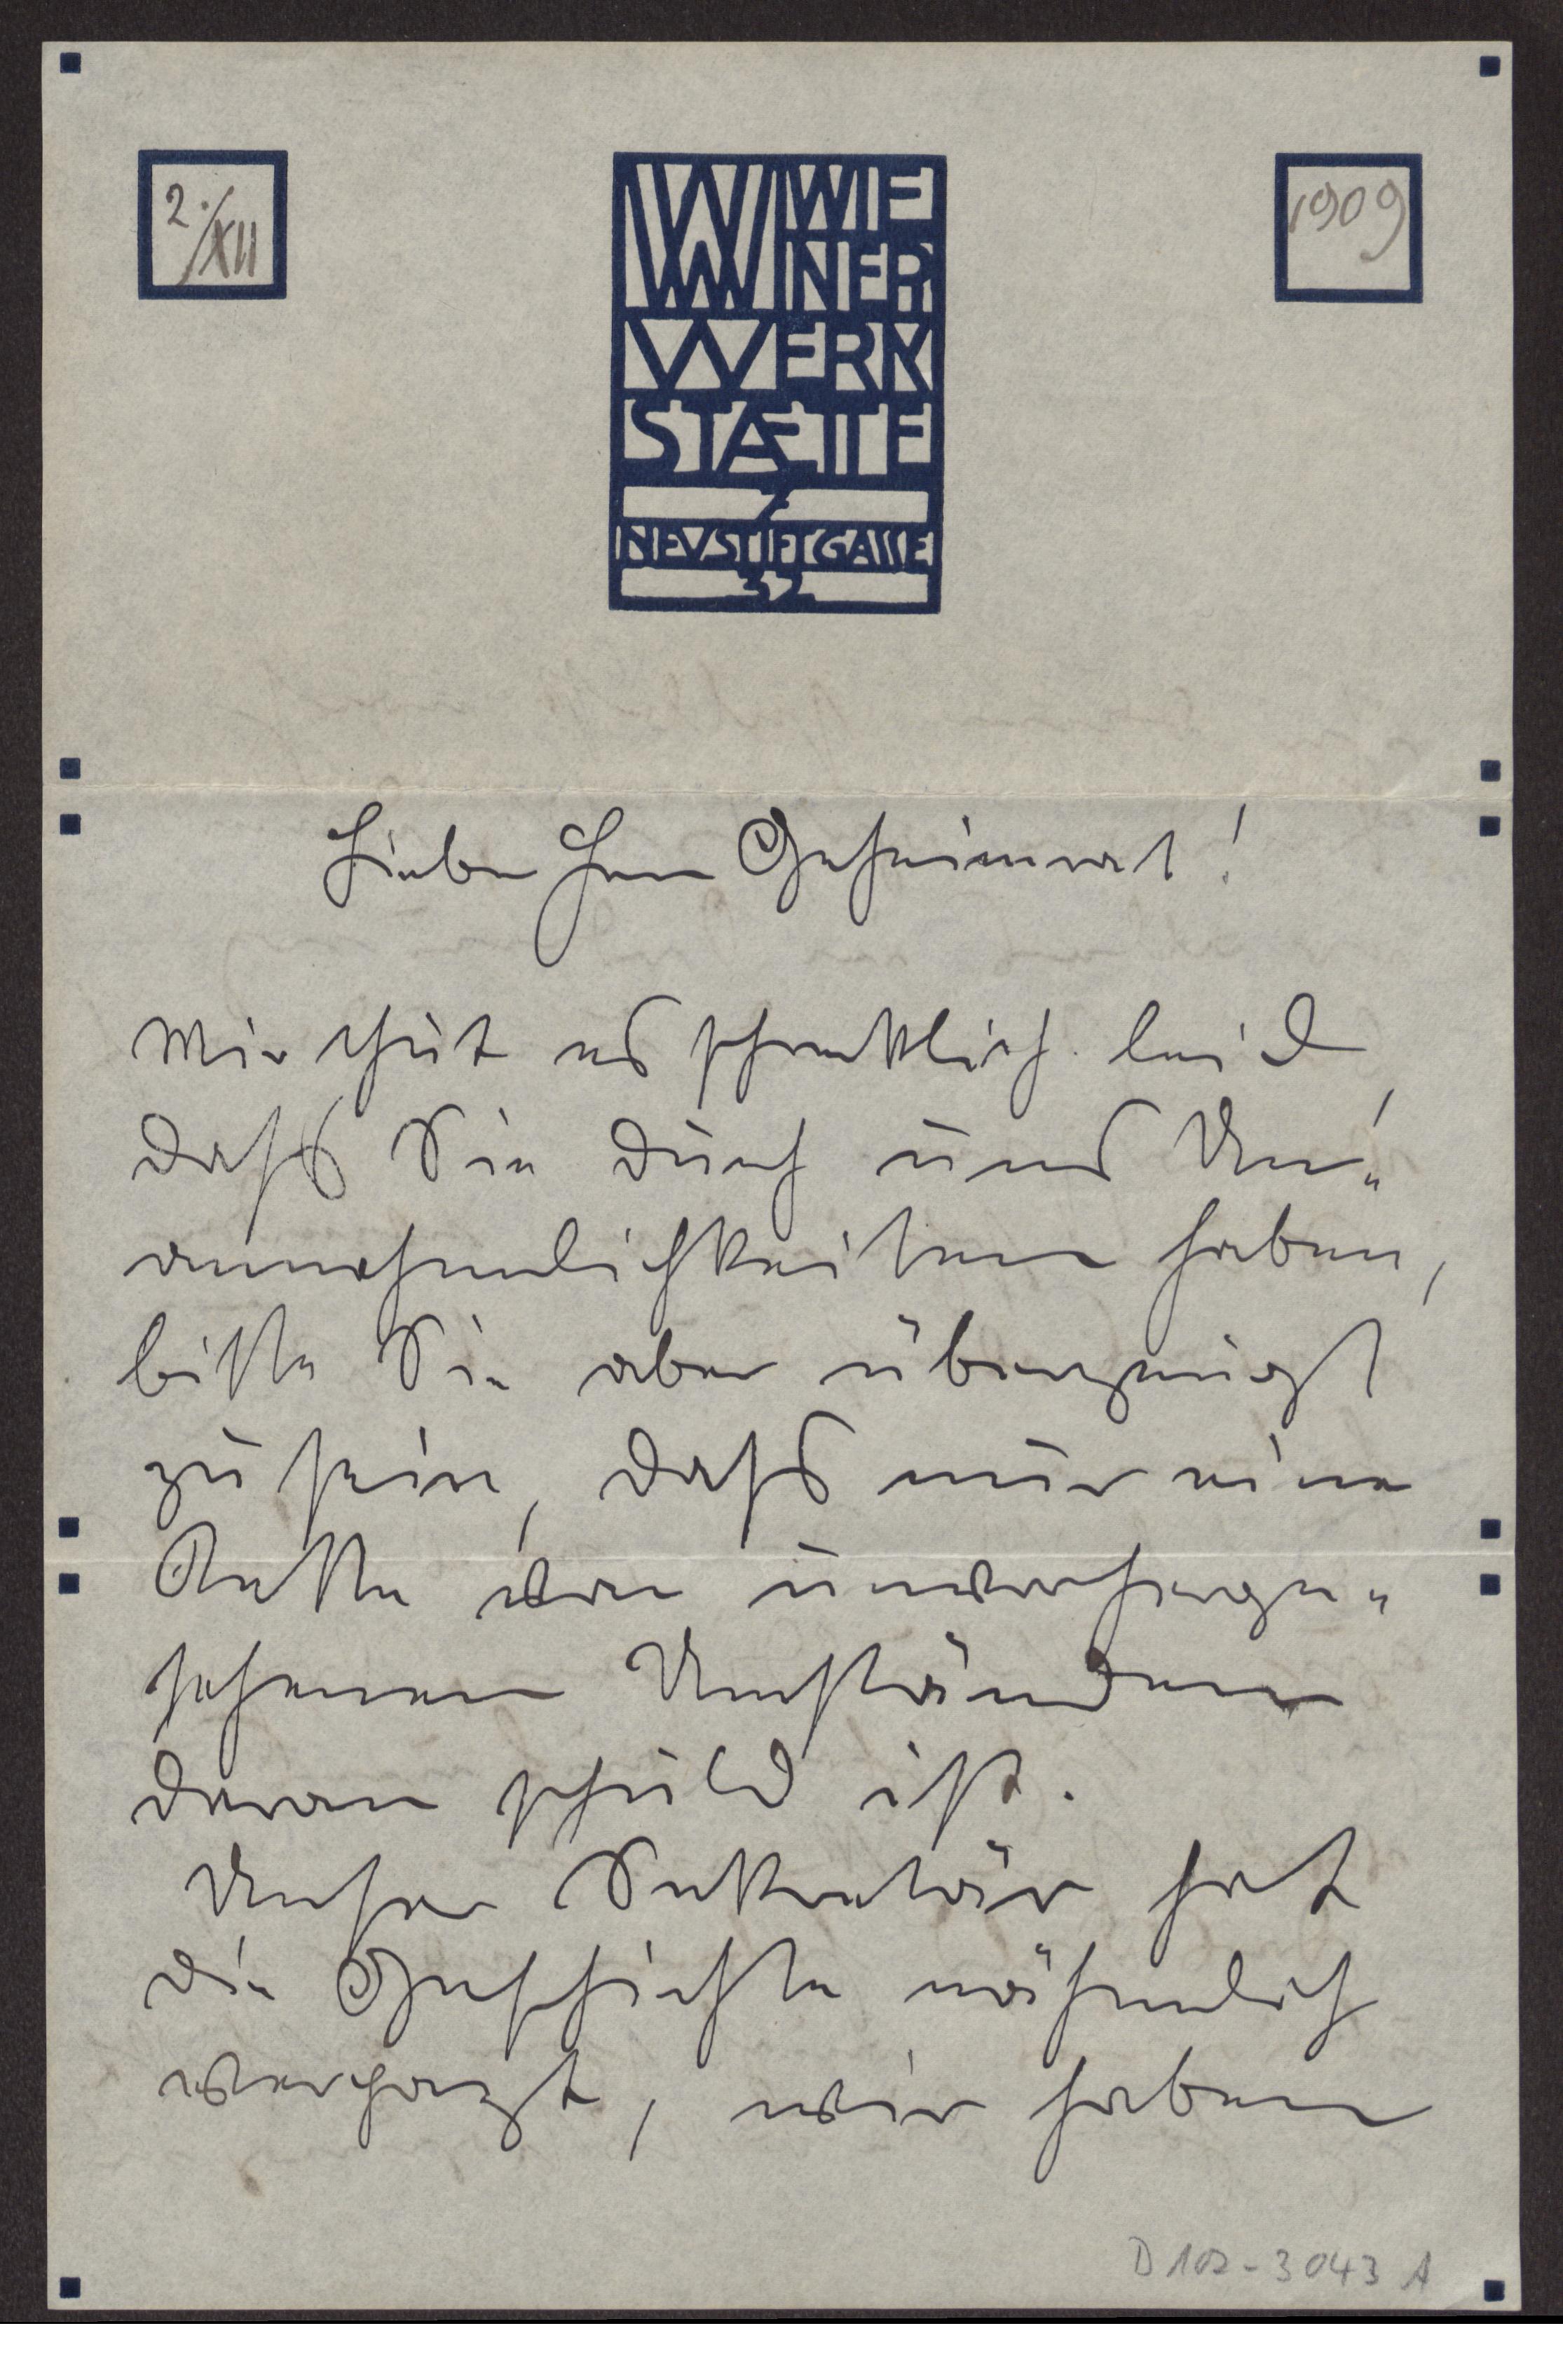 2./XII
1909
WW WIE
NER
WERK
STÆTTE
7
NEVSTIFTGASSE
32
Lieber Herr Geheimrat!
Mir thut es schrecklich leid,
dass Sie durch uns Un„
annehmlichkeiten haben,
bitte Sie aber überzeugt
zu sein, dass nur eine
Kette von unvorherge„
sehenen Umständen
daran schuld ist.
Unser Sekretär hat
die Geschichte nähmlich
verpatzt, wir haben
D 102-3043 A